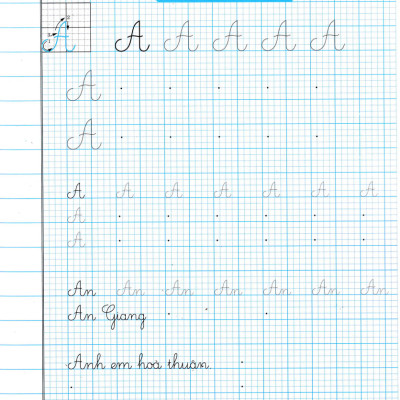 A A A A A A
A
A
A A A A A A A
A
A
An An An An An An An
An Giang
Anh em hoà thuận